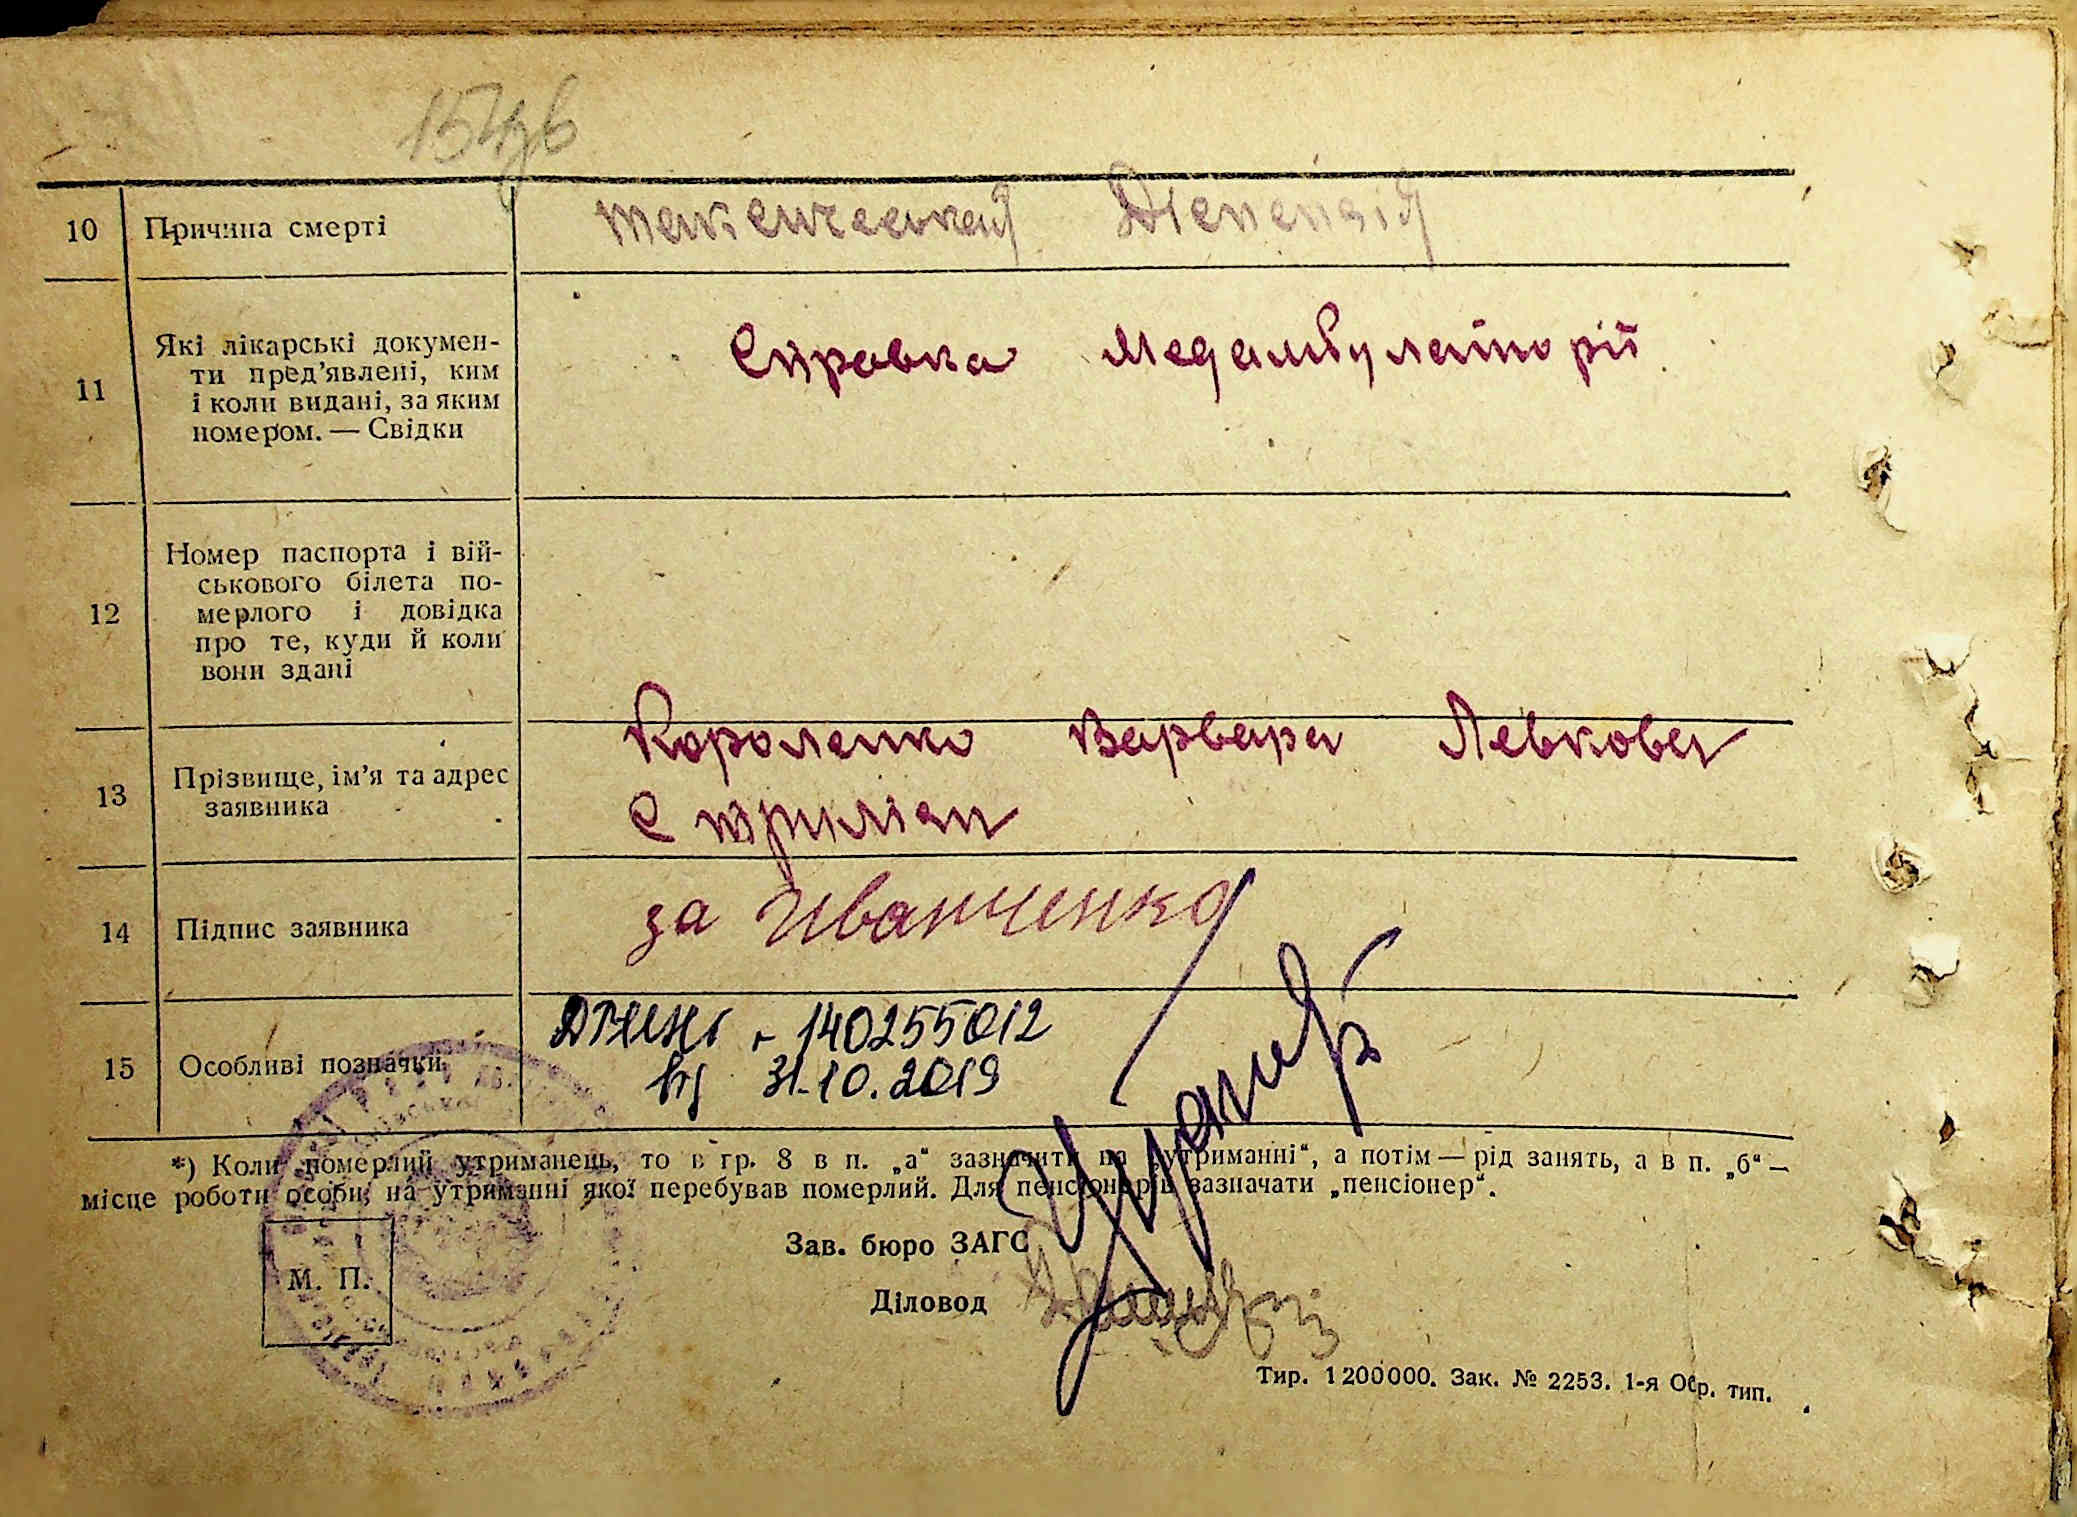 10 Причина смерті токсическая Диспепсія
11 Які лікарські докумен-
ти пред’явлені, ким
і коли видані, за яким
номером. — Свідки
Справка Медамбулаторії
12 Номер паспорта і вій-
ськового білета по-
мерлого і довідка
про те, куди й коли
вони здані
13 Прізвище, ім’я та адрес
заявника
Короленко Варвара Левкова
с
14 Підпис заявника за Иванченко
15 Особливі позначки
140255012
від 31.10.2019
*) Коли померлий утриманець, то в гр. 8 в п. „а“ зазначити на „утриманні“, а потім — рід занять, а в п. „б“ —
місце роботи особи, на утриманні якої перебував померлий. Для пенсіонерів зазначати „пенсіонер“.
Зав. бюро ЗАГС
М. П.
Діловод
Тир. 1200000. Зак. № 2253. 1-я Обр. тип.